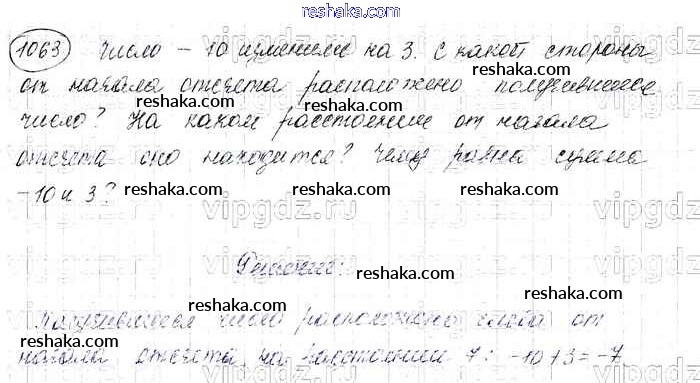 reshaka.com
1063 Число – 10 изменили на 3. С какой стороны
от начала отсчета расположено получившееся
reshaka.com reshaka.com
число? На каком расстоянии от начала
reshaka.com reshaka.com
отсчета оно находится? Чему равна сумма
–10 и 3?
reshaka.com reshaka.com
vipgdz.ru vipgdz.ru
Решение:
reshaka.com
Получившееся число расположено слева от
reshaka.com reshaka.com
начала отсчета на расстоянии 7: –10+3=–7
reshaka.com